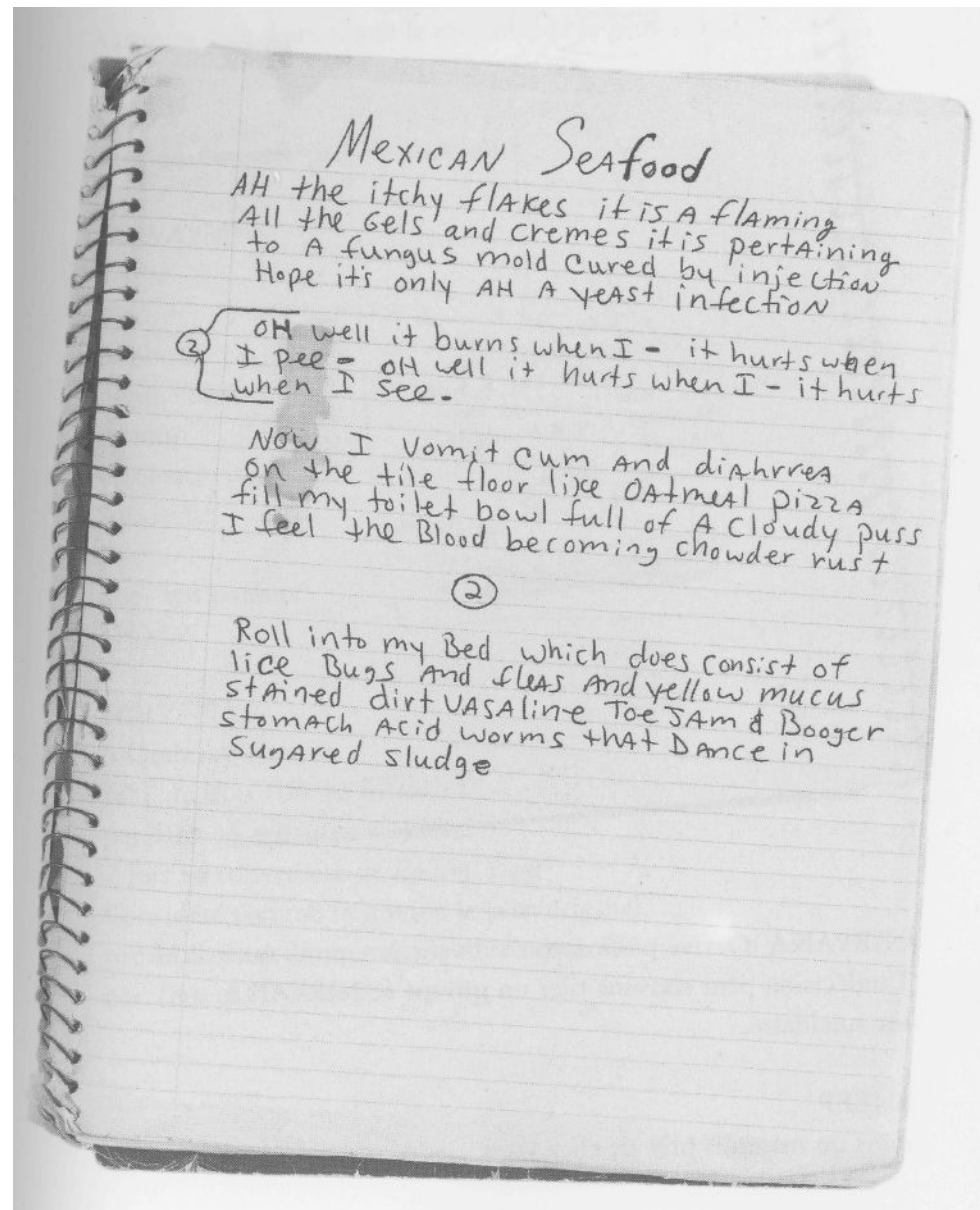 MEXICAN SEAfood
AH the itchy flAKes it is A flAming
All the Gels and cremes it is pertAining
to A fungus mold cured by injection
Hope it's only AH A yeAst infection
② OH well it burns when I - it hurts when
I pee - OH well it hurts when I - it hurts
when I see.
Now I vomit cum And diAhrreA
on the tile floor like OAtmeAl pizzA
fill my toilet bowl full of A cloudy puss
I feel the Blood becoming chowder rust
②
Roll into my Bed which does consist of
lice Bugs And fleAs And yellow mucus
stAined dirt VASAline Toe JAm & Booger
stomAch Acid worms thAt DAnce in
SugAred sludge